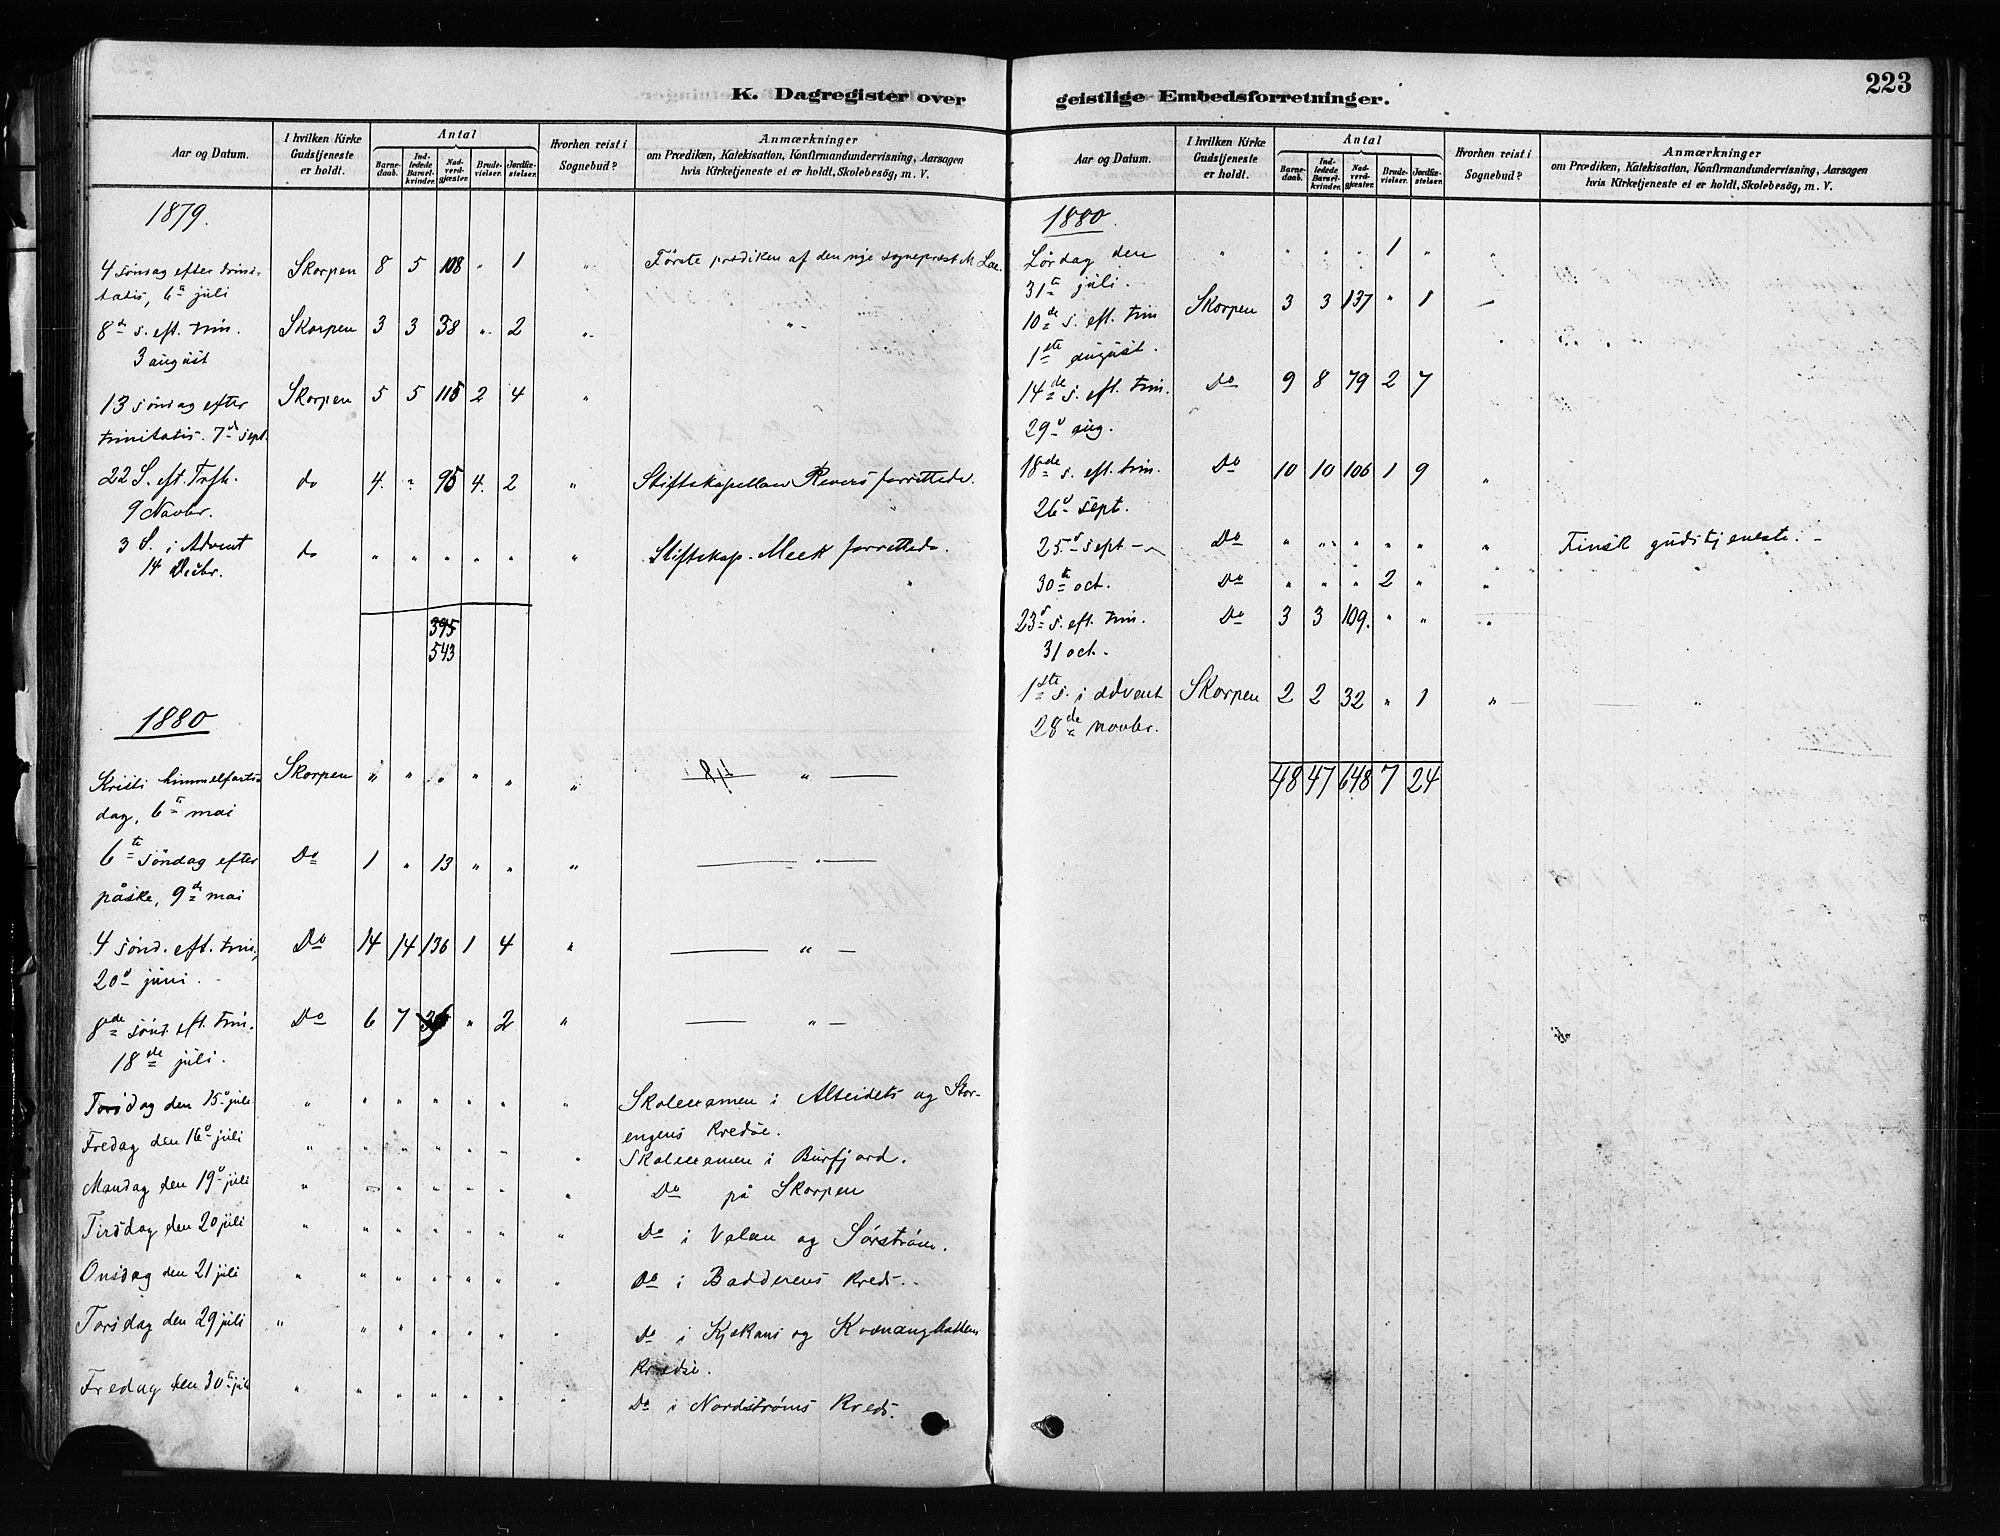 223
K. Dagregister over geistlige Embedsforretninger.
Aar og Datum. I hvilken Kirke Gudstjeneste er holdt. Antal Barnedaab. Indledede Barselkvinder. Nadverdgjæster. Brudevielser. Jordfæstelser. Hvorhen reist i Sognebud? Anmærkninger om Prædiken, Katekisation, Konfirmandundervisning, Aarsagen hvis Kirketjeneste ei er holdt, Skolebesög, m. V.
1879.
4 söndag efter trini- Skorpen 8 5 108 " 1 " Förste prædiken af den nye sogneprest M
tatis, 6te juli
8de s. eft. trin. Skorpen 3 3 38 " 2 " "
3 august
13 söndag efter Skorpen 5 5 115 2 4 "
trinitatis. 7de sept.
22 S. eft. Trfh. do 4. " 95 4. 2 " Stiftskapellan Revers forrettede.
9 Novbr.
3 S. i Advent do " " " " " " Stiftskap. Meek forrettede.
14 Decbr.
395
543
1880
Kristi himmelfarts- Skorpen " " " " " " "
dag, 6te mai
6te söndag efter Do 1 " 13 " " " "
påske, 9de mai
4 sönd. eft. trin., Do 14 14 136 1 4 " "
20de juni.
8de sönd. eft. trin. Do 6 7 " 2 " "
18de juli.
Torsdag den 15de juli " " " " " " " Skoleexamen i Alteidets og Stor-
engens kredse.
Fredag den 16de juli " " " " " " " Skoleexamen i Burfjord.
Mandag den 19de juli " " " " " " " Do på Skorpen
Tirsdag den 20 juli " " " " " " " Do i Valan og Sørstrøm.
Onsdag den 21 juli " " " " " " " Do i Badderens kreds.
Torsdag den 29 juli " " " " " " " Do i Kjækans og Kvænangbottens
kredse.
Fredag den 30te juli " " " " " " " Do i Nordstrøms kreds.
Aar og Datum. I hvilken Kirke Gudstjeneste er holdt. Antal Barnedaab. Indledede Barselkvinder. Nadverdgjæster. Brudevielser. Jordfæstelser. Hvorhen reist i Sognebud? Anmærkninger om Prædiken, Katekisation, Konfirmandundervisning, Aarsagen hvis Kirketjeneste ei er holdt, Skolebesög, m. V.
1880.
Lørdag den " " " " 1 " "
31te juli.
10de s. eft. trin Skorpen 3 3 137 " 1
1ste august.
14de s. eft. trin. Do 9 8 79 2 7
29de aug.
18de s. eft. trin. Do 10 10 106 1 9 "
26de sept.
25de sept Do " " " " " " Finsk gudstjeneste.
30te oct. Do " " " 2 " "
23de s. eft. trin. Do 3 3 109. " " "
31 oct.
1ste s. i advent Skorpen 2 2 32 " 1 " "
28de novbr.
48 47 648 7 24